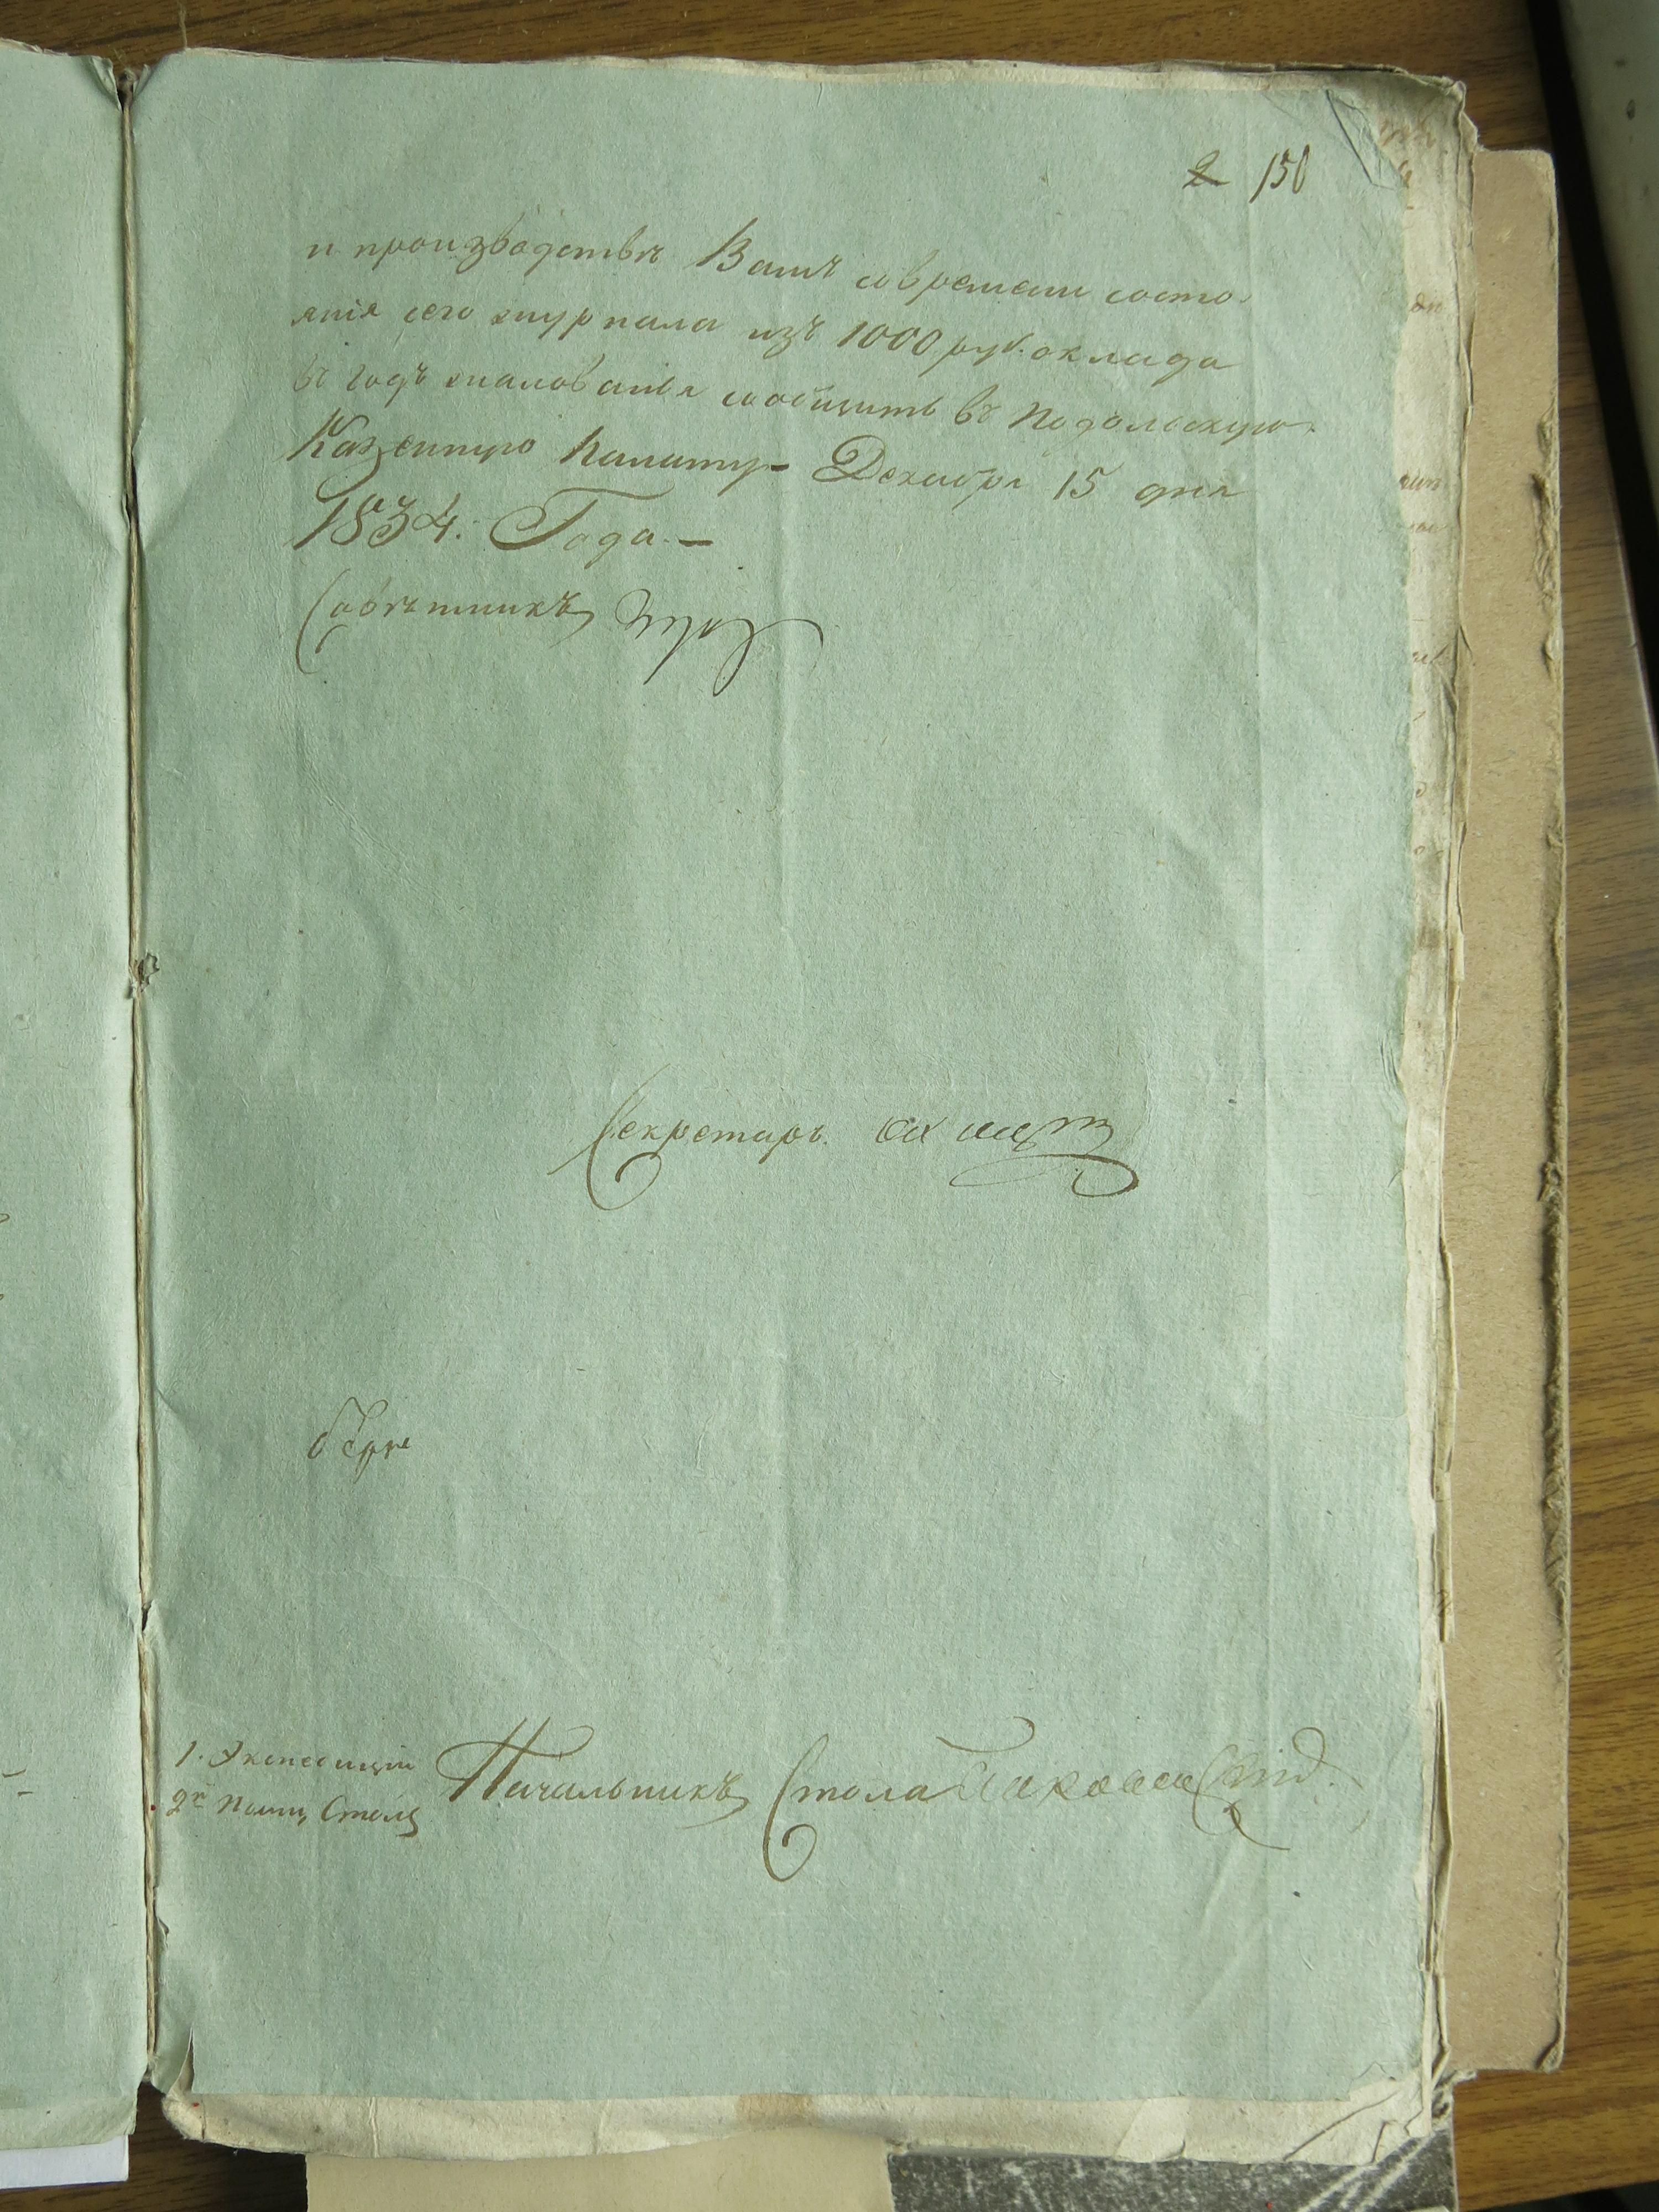 2 150
и производстве Вамъ современи состо-
янія сего журнала изъ 1000 руб. оклада
въ годъ жалованья сообщить въ Подольскую
Казенную Палату – Декабря 15 дня
1834. Года. –
Советникъ
Секретарь
1. Экспедиціи
Начальникъ Стола
2го Стола